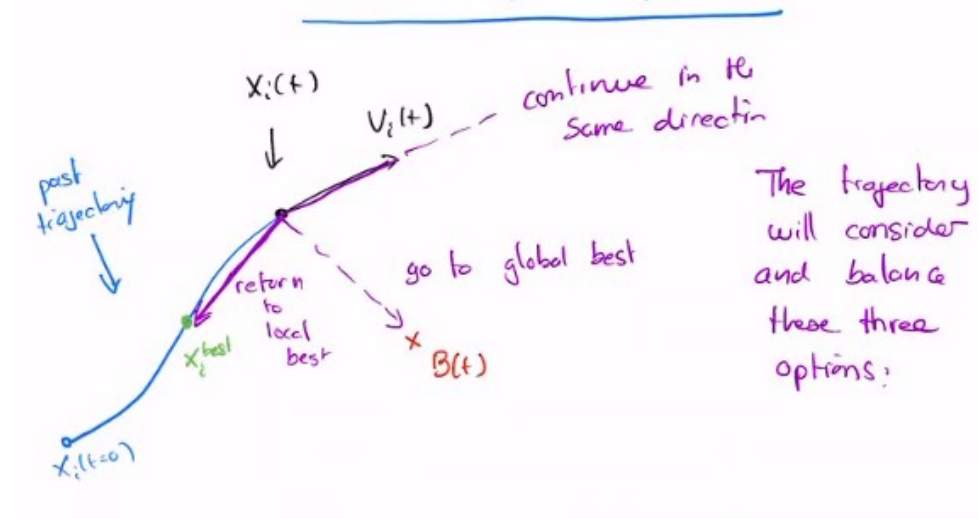 Xi(t)
Vi(t)
continue in the
same directin
past
trajectory
return
to
local
best
go to global best
xi^best
B(t)
Xi(t=0)
The trajectory
will consider
and balance
these three
options: